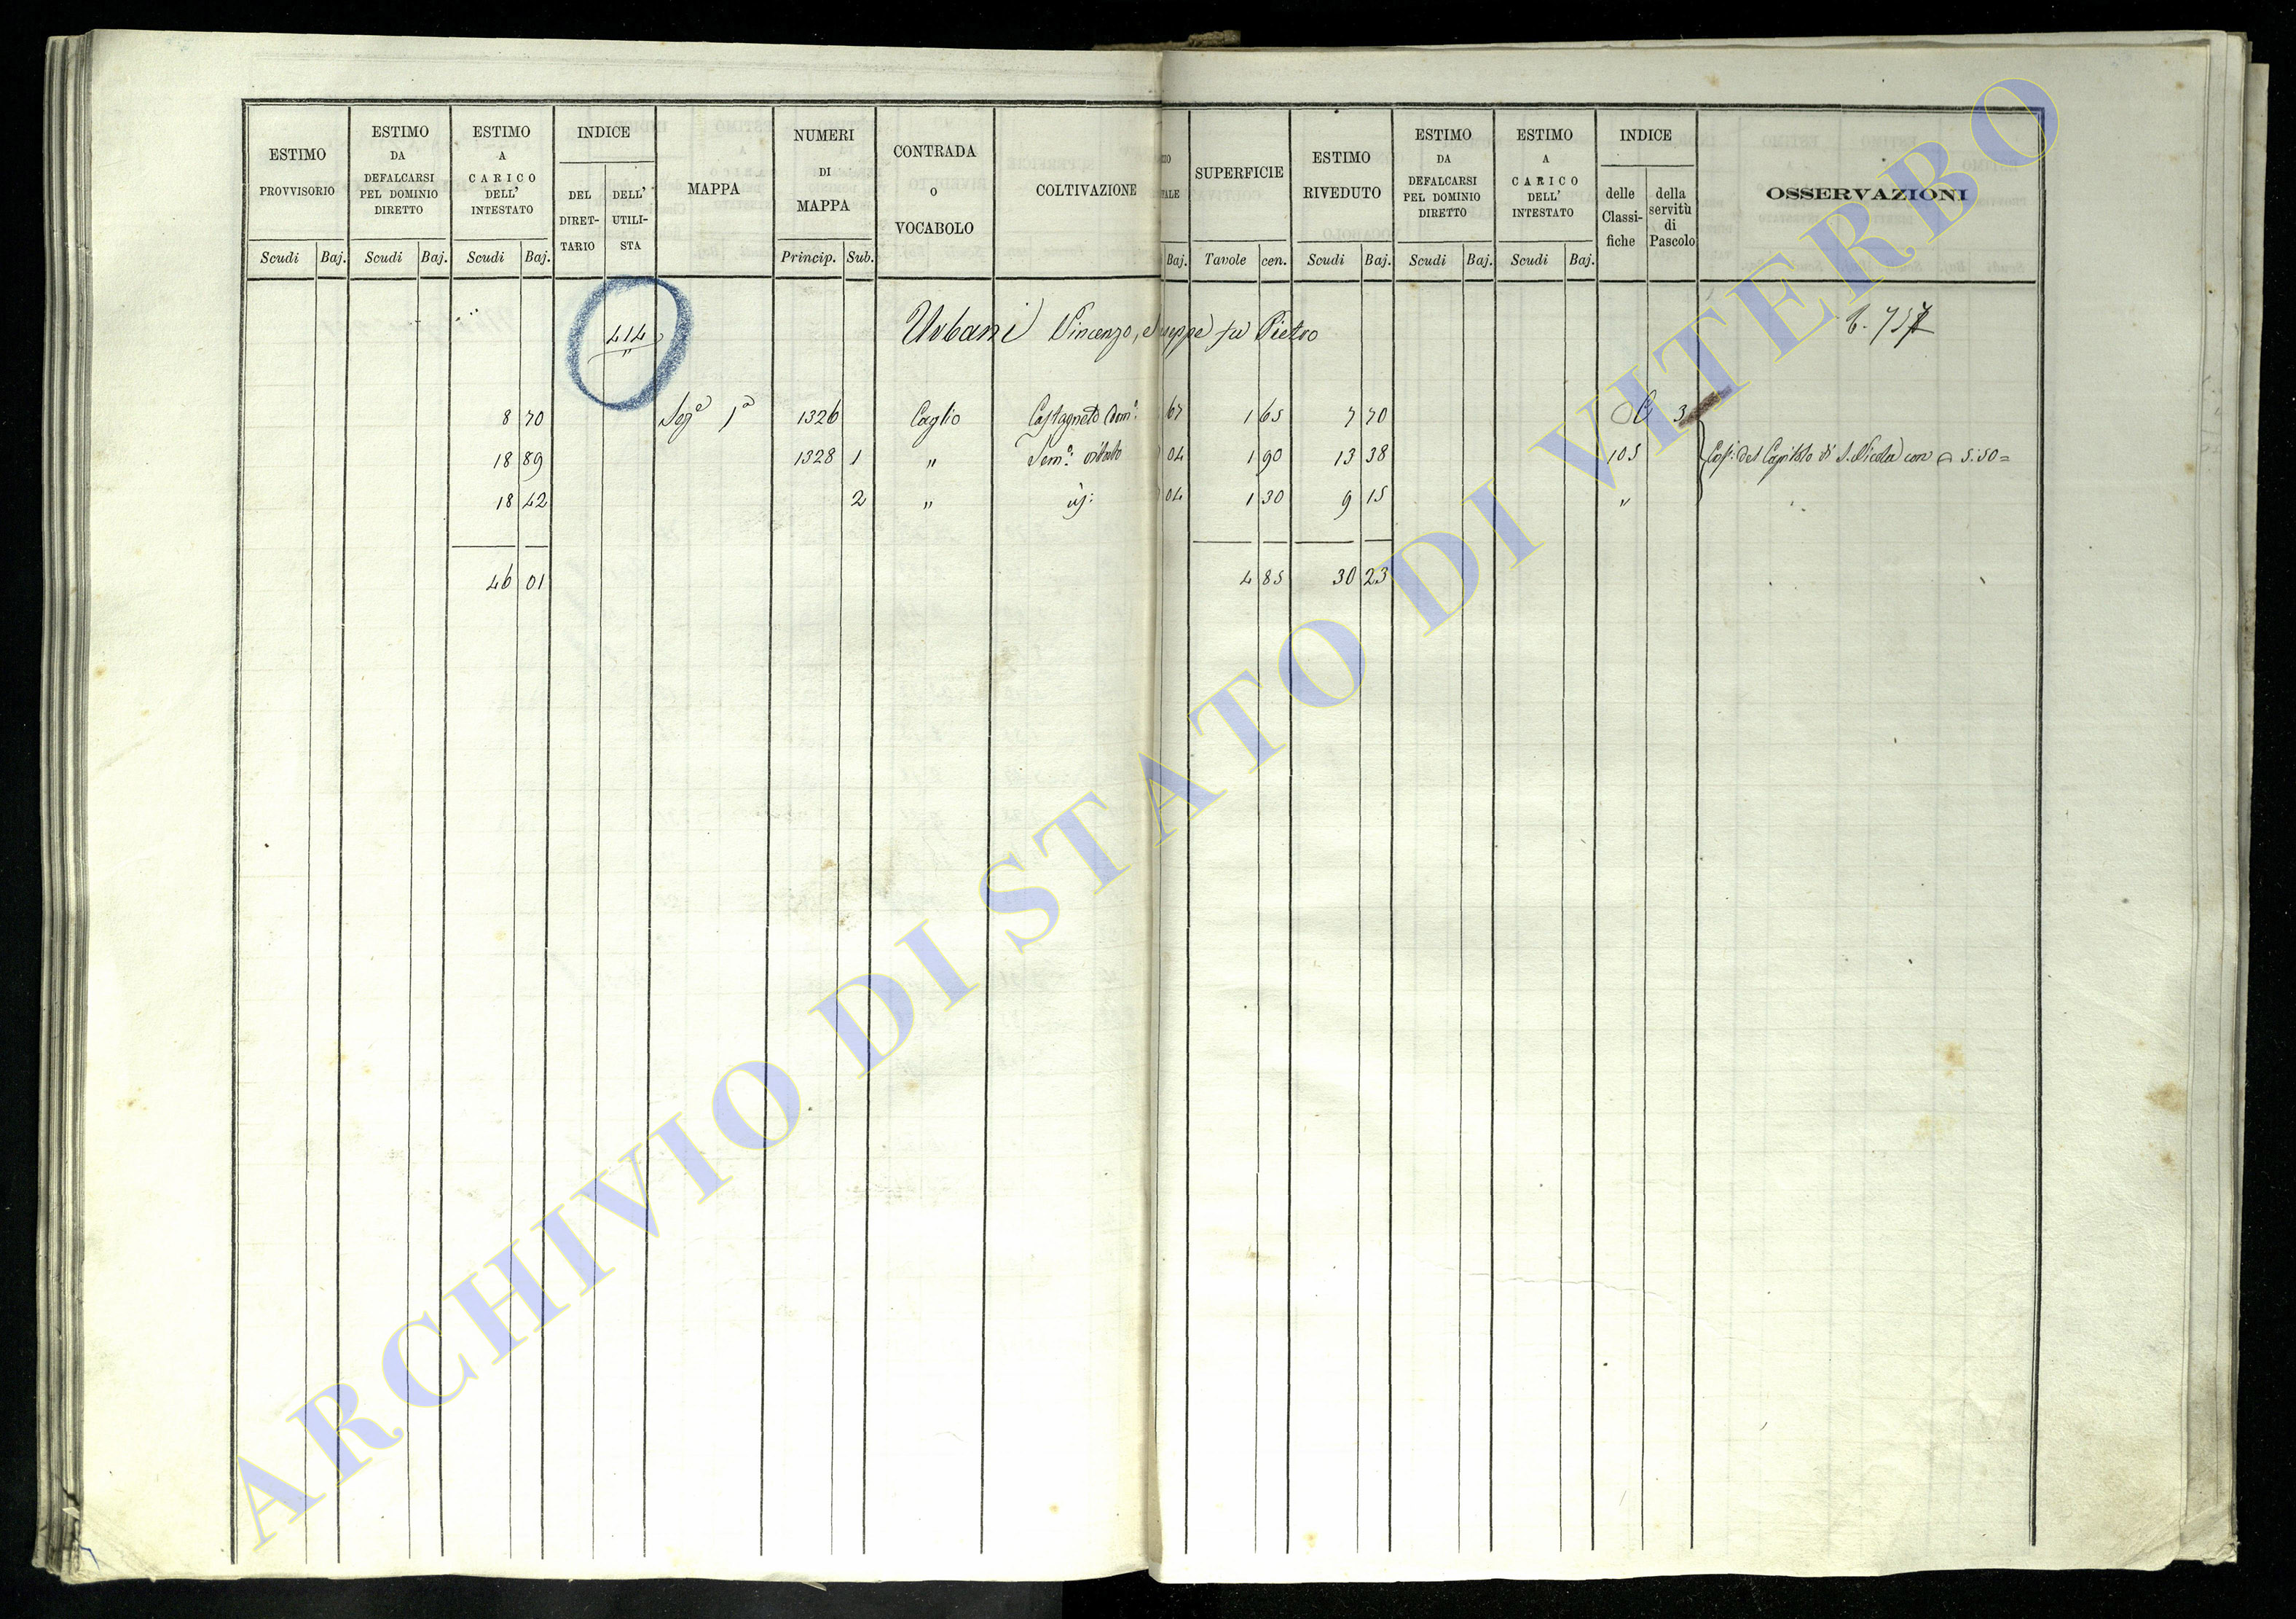 ESTIMO PROVVISORIO
Scudi Baj.
ESTIMO DA DEFALCARSI PEL DOMINIO DIRETTO
Scudi Baj.
ESTIMO A CARICO DELL' INTESTATO
Scudi Baj.
INDICE
DEL DIRET-TARIO
DELL' UTILI-STA
MAPPA
NUMERI DI MAPPA
Princip. Sub.
CONTRADA O VOCABOLO
COLTIVAZIONE
Baj.
SUPERFICIE
Tavole cen.
ESTIMO RIVEDUTO
Scudi Baj.
ESTIMO DA DEFALCARSI PEL DOMINIO DIRETTO
Scudi Baj.
ESTIMO A CARICO DELL' INTESTATO
Scudi Baj.
INDICE
delle Classi-fiche
della servitù di Pascolo
OSSERVAZIONI
414 Urbani Vincenzo, fu Pietro
8 70 Sez.e 1a 1326 Caglio Castagneto Dom.o 67 1 65 7 70 3
18 89 1328 1 " Sem.o 04 1 90 13 38 105 del Capitolo di S. Nicola con 5:50=
18 42 2 " 04 1 30 9 15 "
46 01 4 85 30 23
ARCHIVIO DI STATO DI VITERBO